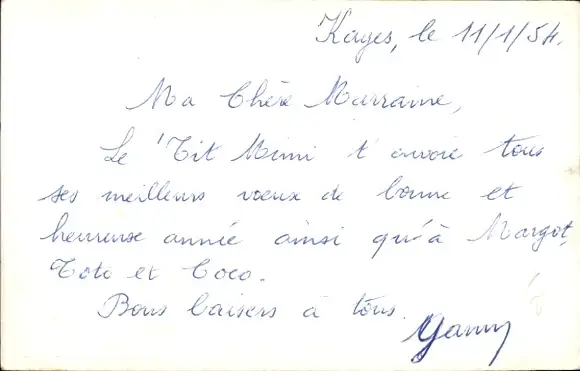 Kayes, le 11/1/54.
Ma Chère Marraine,
Le 'Tit Mimi t'envoie tous
ses meilleurs vœux de bonne et
heureuse année ainsi qu'à Margot,
Toto et Coco.
Bons baisers à tous.